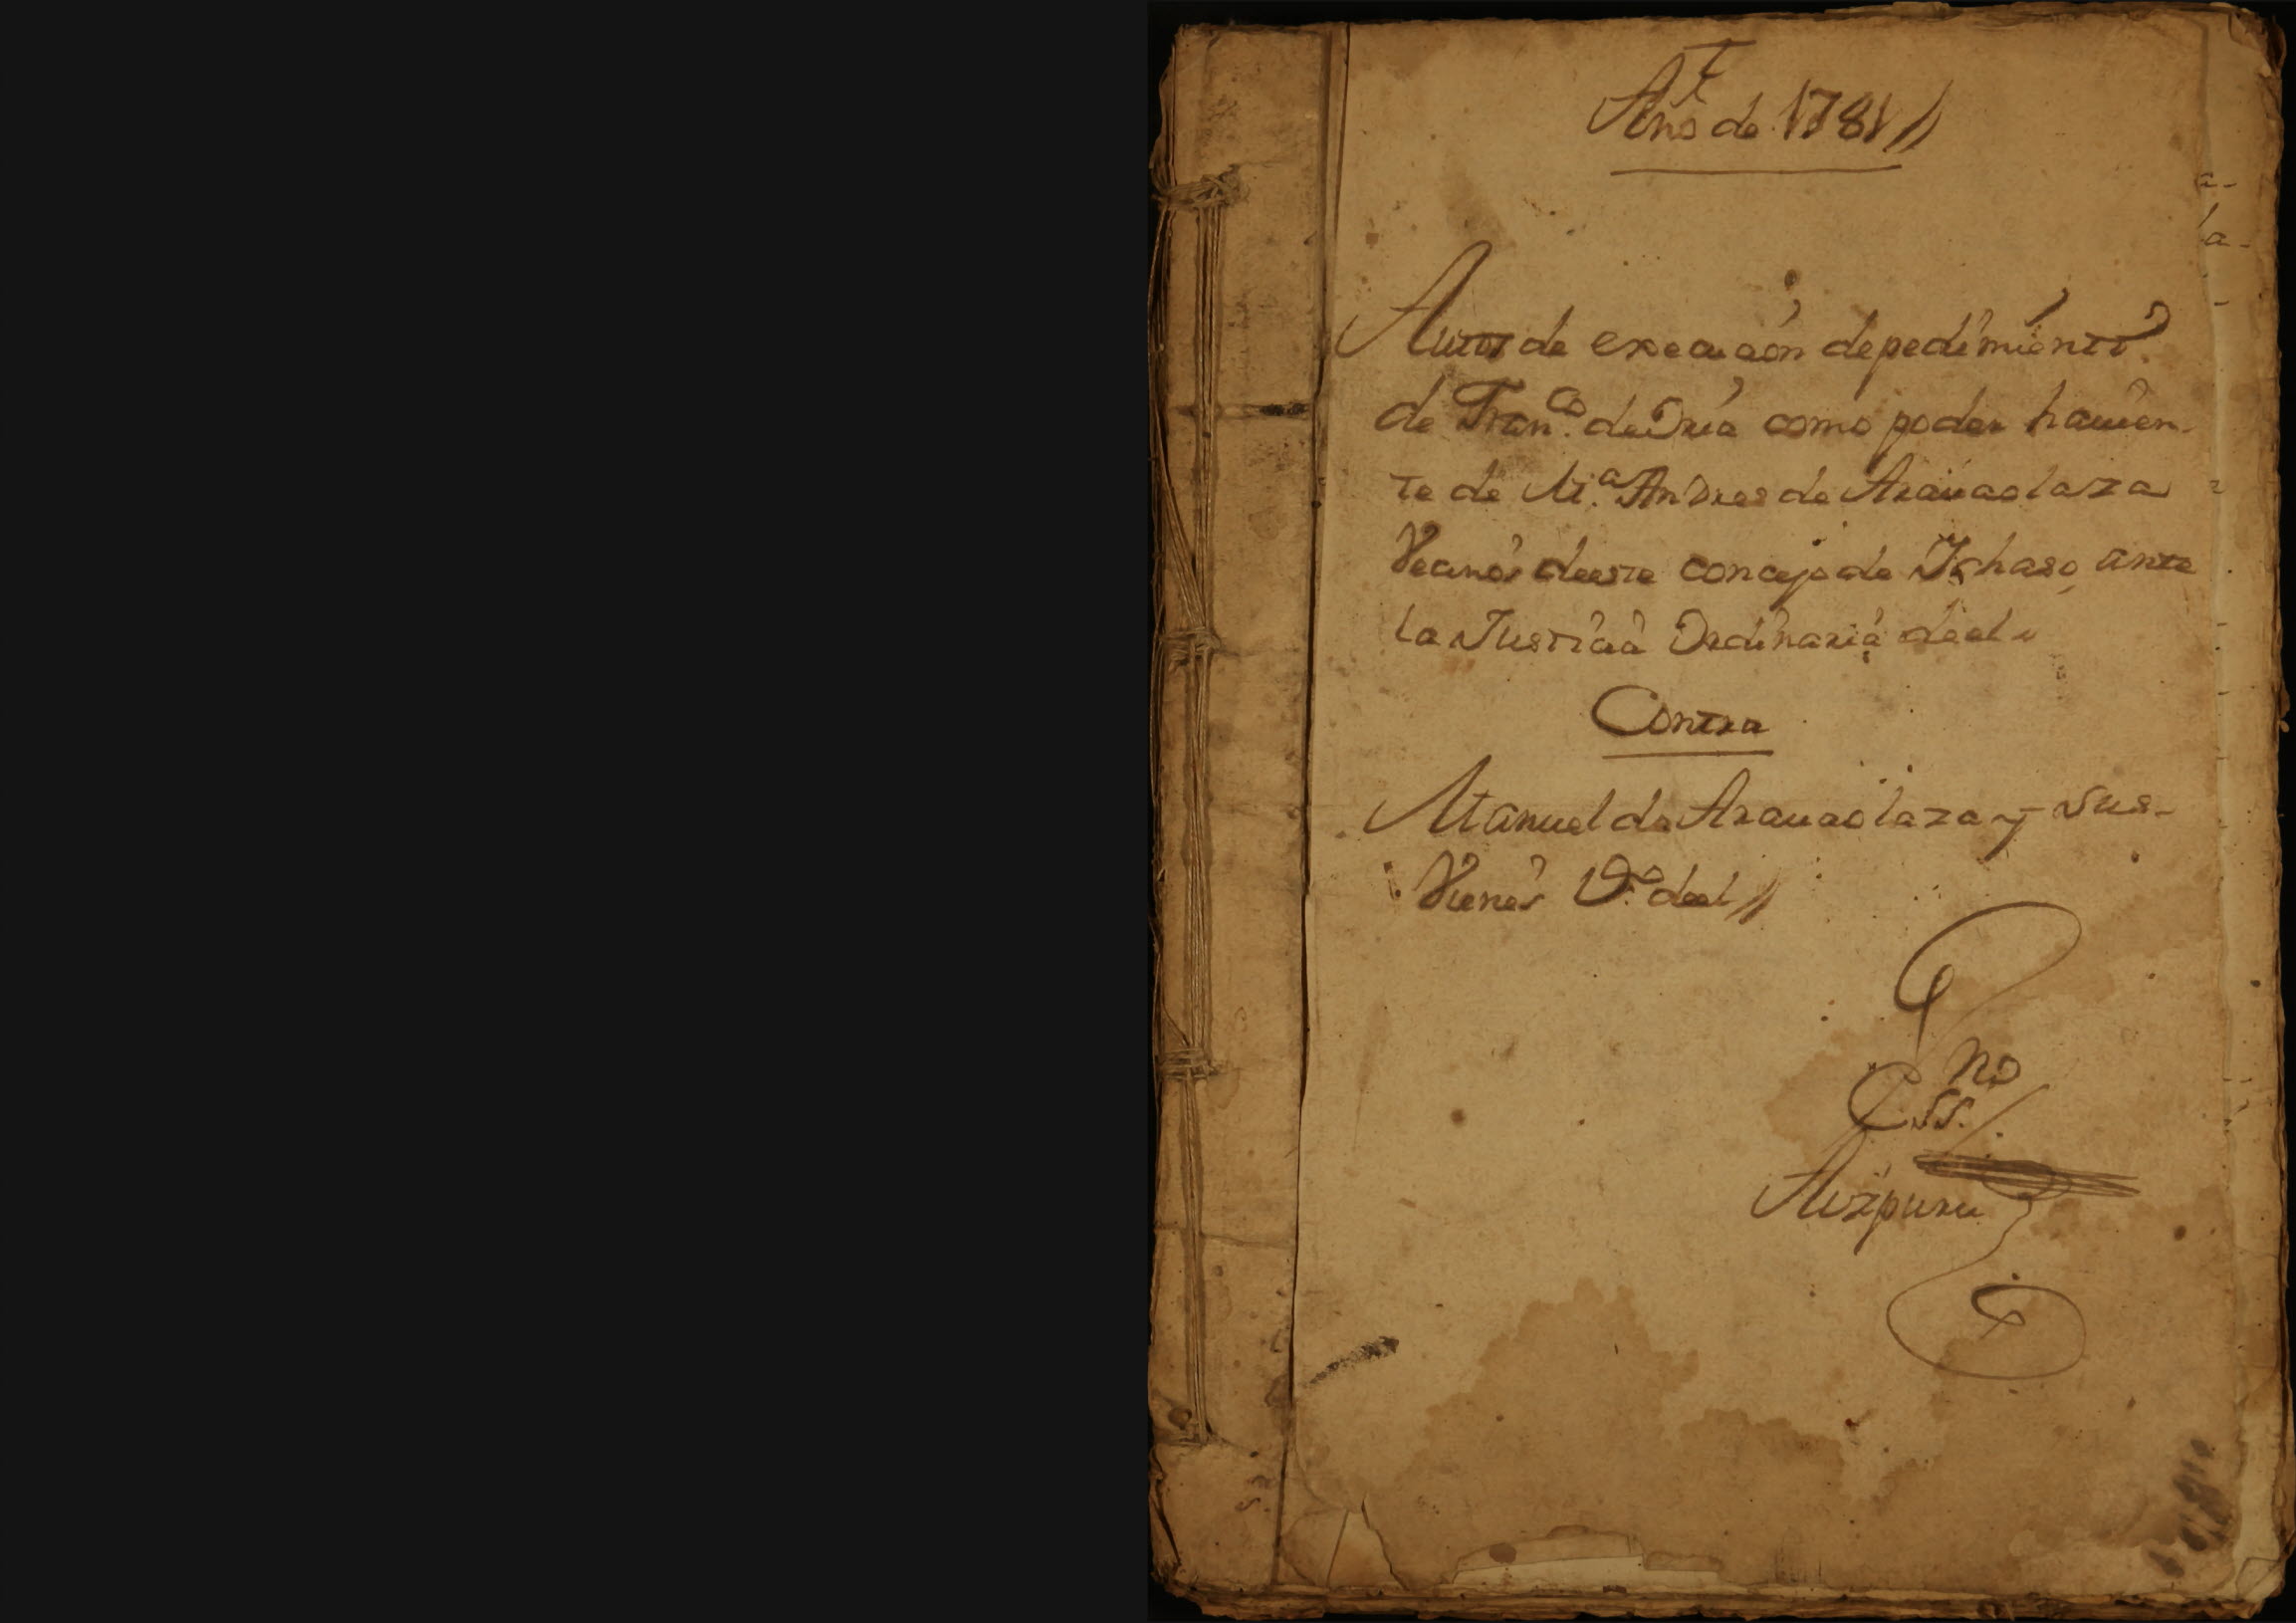 Año de 1781//
Autos de execuçion de pedimiento
de Fran.co de Oria como poder havien-
te de M.a Andres de Arauaolaza
Veçinos de este conçejo de Ychaso, ante
la Justiçia Ordinaria de el
Contra
Manuel de Arauaolaza y sus-
Vienes V.o de el//
Ess.no
Aizpuru